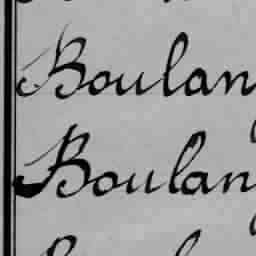 Boulang
Boulang